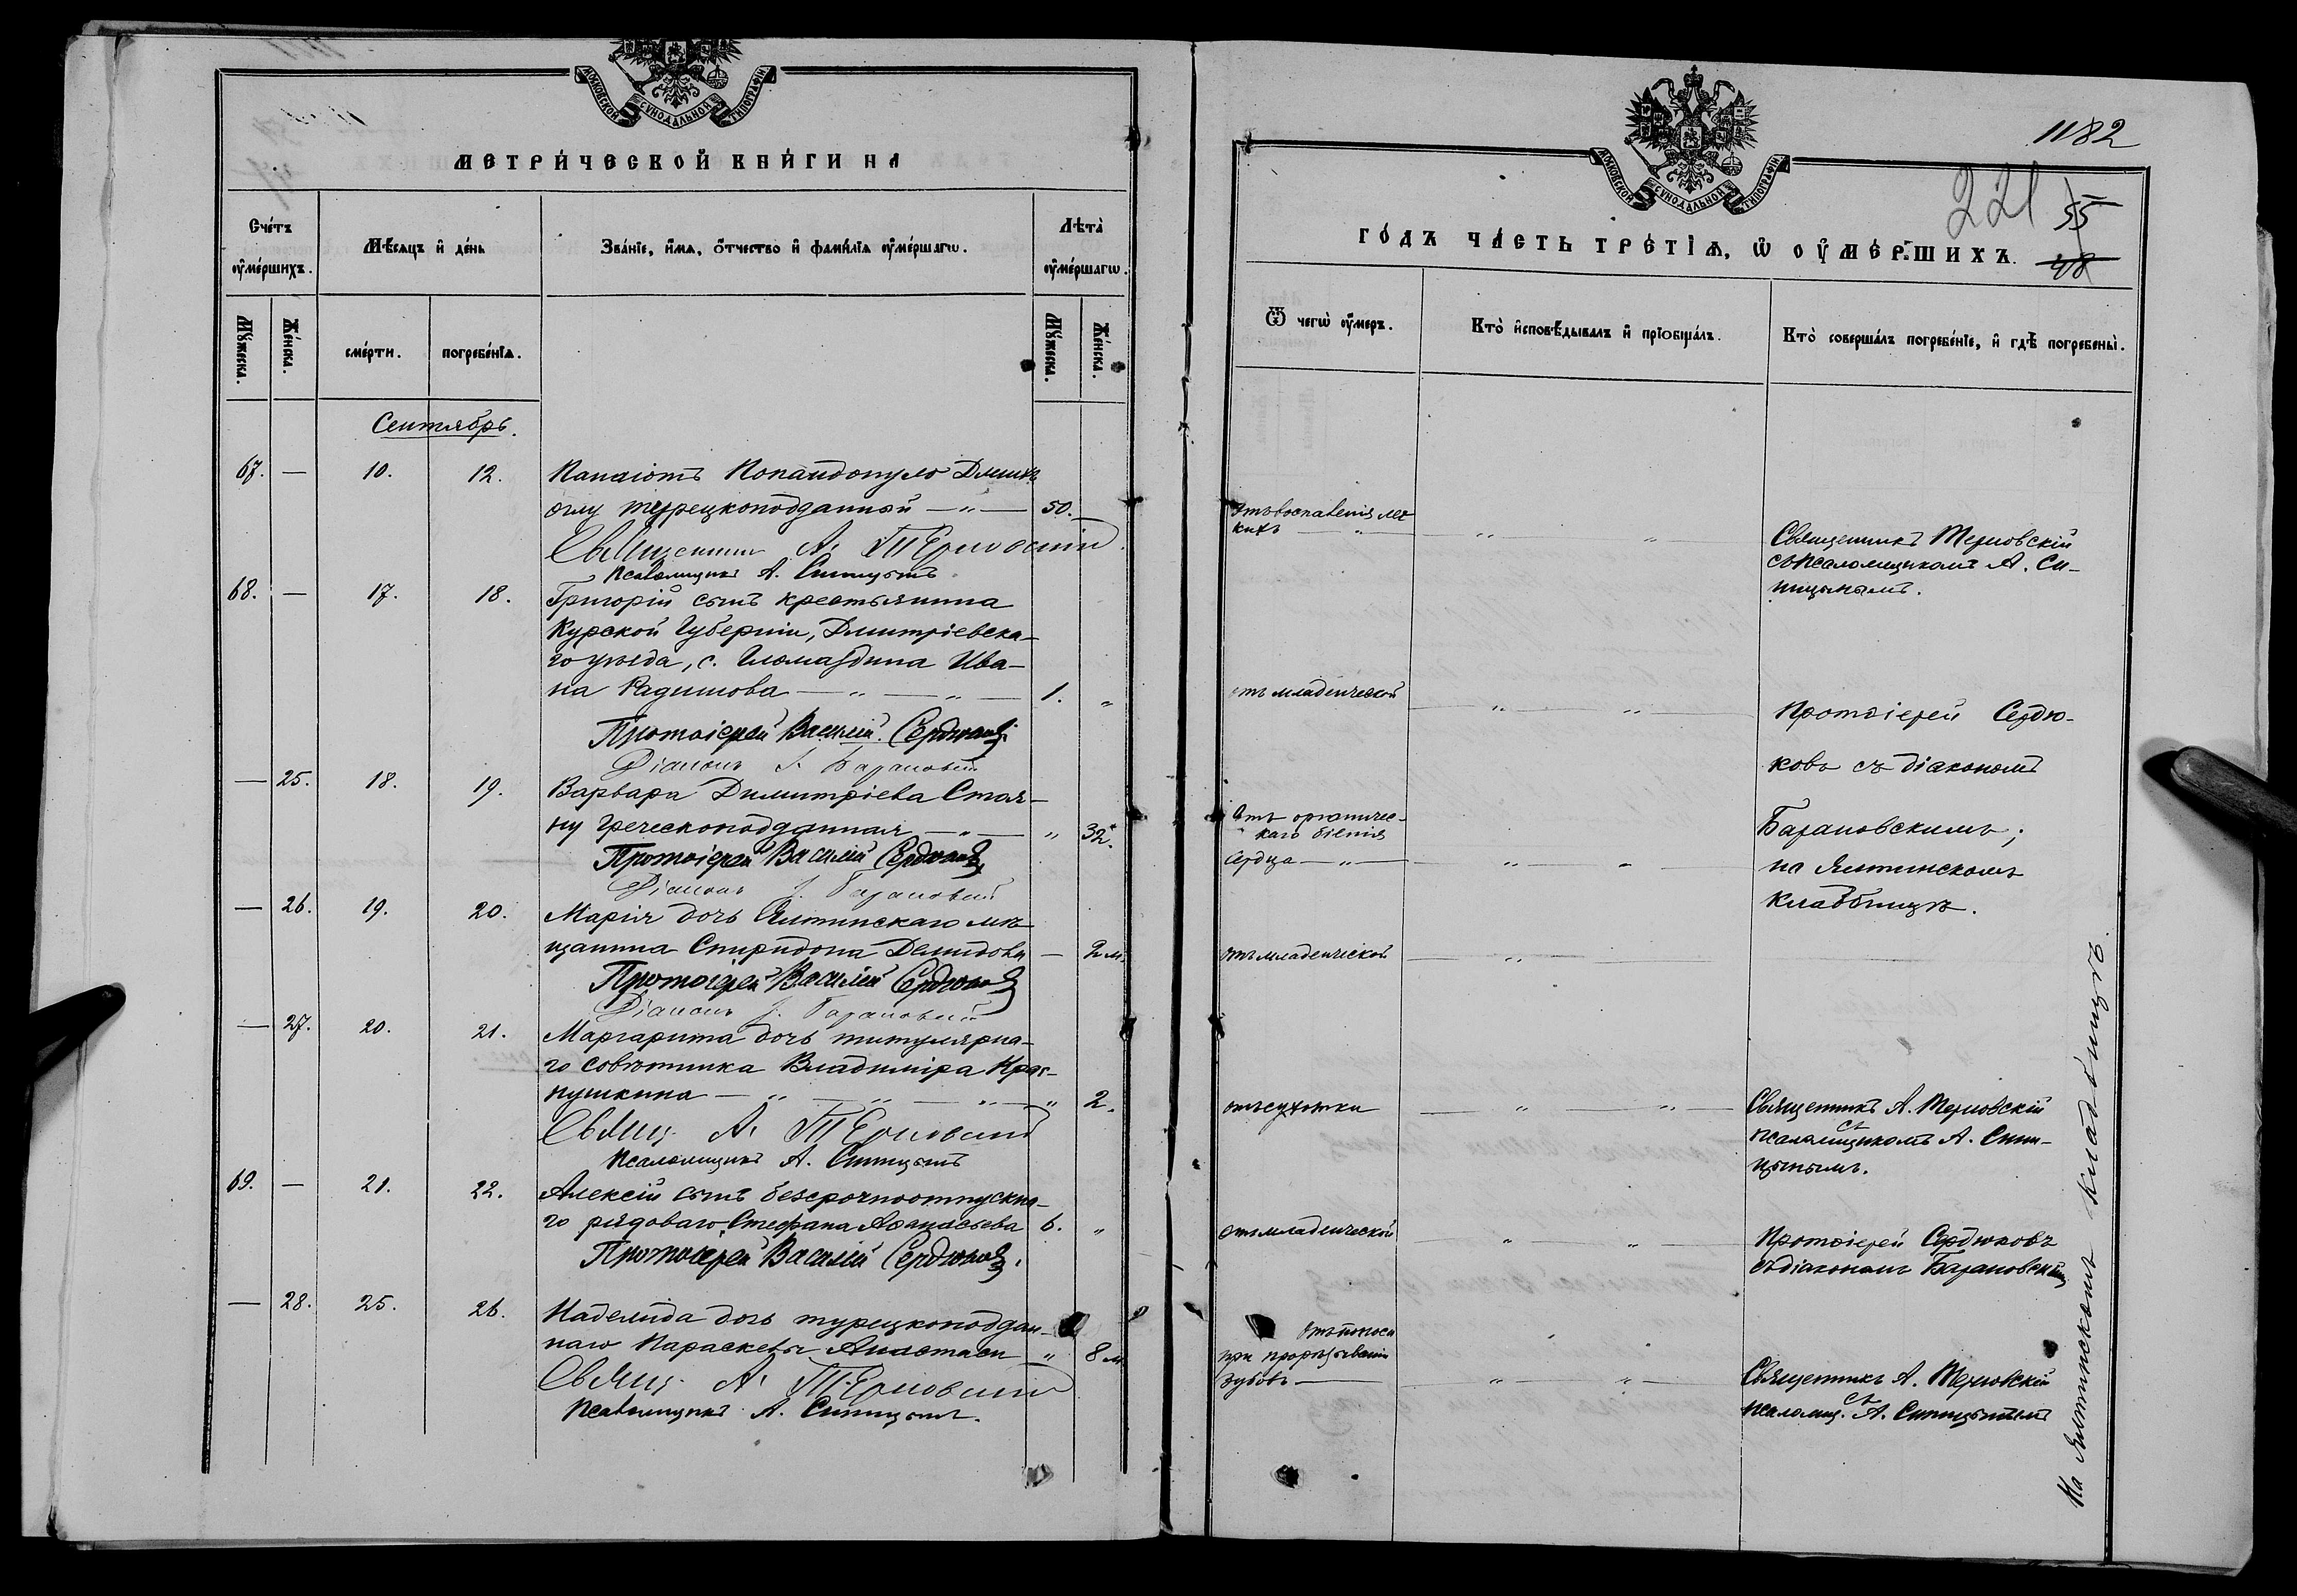 МОСКОВСКОЙ СУНОДАЛЬНОЙ ТИПОГРАФІИ
МЕТРИ́ЧЕСКОЙ КНИ́ГИ НА
Сче́тъ ᲂу҆ме́ршихъ.
Мѣ́сяцъ и҆ де́нь
Зва́нїе, и҆́мѧ, ѻ҆́тчество и҆ фами́лїѧ ᲂу҆ме́ршагѡ.
Лѣта̀ ᲂу҆ме́ршагѡ.
Мꙋ́жеска.
Же́нска.
сме́рти.
погребе́нїѧ.
Мꙋ́жеска.
Же́нска.
Сентябрь.
67. — 10. 12. Панаіотъ Попандопуло Дмит
оглу турецкоподданный — „ — 50.
Священник А. Терновскій
Псаломщикъ А. Синицынъ
68. — 17. 18. Григорій сынъ крестьянина
Курской Губерніи, Дмитріевска-
го уѣзда, с. Гламаздина Ива-
на Радинова — „ — „ — 1. „
Протоіерей Василій Сердюковъ
Діаконъ І. Барановскій
— 25. 18. 19. Варвара Димитріева Стая-
ну Греческоподданная — „ — „ 32.
Протоіерей Василій Сердюковъ
Діаконъ І. Барановскій
— 26. 19. 20. Марія дочь Ялтинскаго мѣ-
щанина Спиридона Демидова — 2 м.
Протоіерей Василій Сердюковъ
Діаконъ І. Барановскій
— 27. 20. 21. Маргарита дочь титулярна-
го совѣтника Владиміра Крас-
пушкина — „ — „ — „ — „ 2.
Свящ. А. Терновскій
Псаломщикъ А. Синицынъ
69. — 21. 22. Алексій сынъ безсрочноотпускна-
го рядоваго Стефана Аѳанасьева 6. „
Протоіерей Василій Сердюковъ.
— 28. 25. 26. Надежда дочь турецкоподдан-
наго Параскевы Анастаси „ 8 м.
Свящ. А. Терновскій
Псаломщикъ А. Синицынъ.
1182
МОСКОВСКОЙ СУНОДАЛЬНОЙ ТИПОГРАФІИ
221 55
48
ГО́ДЪ ЧА́СТЬ ТРЕ́ТЇѦ, Ѡ҆ ОУ҆МЕ́РШИХЪ.
Ѿ чегѡ̀ ᲂу҆́меръ.
Кто̀ и҆сповѣ́дывалъ и҆ прїѡбща́лъ.
Кто̀ соверша́лъ погребе́нїе, и҆ гдѣ̀ погребены̀.
Отъ воспаленія лег
кихъ — „ — „ — „ —
Священникъ Терновскій
съ псаломщикомъ А. Си-
ницынымъ.
отъ младенческой — „ — „ —
Протоіерей Сердю-
ковъ съ діакономъ
Барановскимъ;
на Ялтинскомъ
кладбищѣ.
Отъ органичес-
каго біенія
сердца — „ — „ —
отъ младенческой — „ —
отъ сухотки — „ — „ —
Священникъ А. Терновскій
съ
псаломщикомъ А. Сини-
цынымъ.
Отъ младенческой „ — „ —
Протоіерей Сердюковъ
съ діакономъ Барановскимъ
Отъ поноса
при прорѣзываніи
зубовъ — „ — „ —
Священникъ А. Терновскій
съ
псаломщ. А. Синицынымъ
На Ялтинскомъ кладбищѣ.